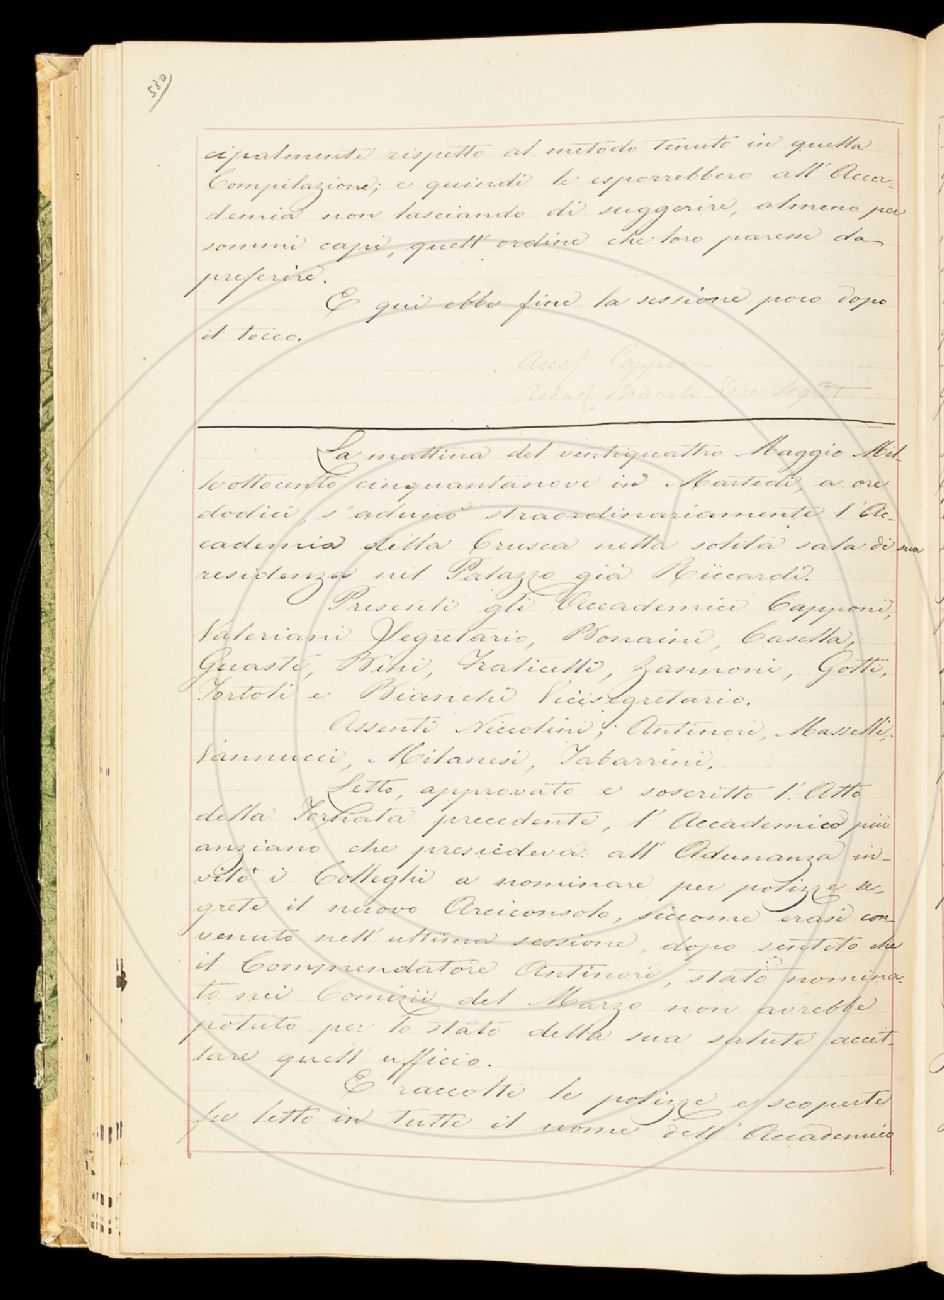 580
cipalmente rispetto al metodo tenuto in quella
Compilazione; e quindi le esporrebbero all'Acca-
demia non lasciando di suggerire, almeno per
sommi capi, quell'ordine che loro paresse da
preferire.
E qui ebbe fine la sessione poco dopo
il tocco.
Accad. Capponi
Accad. Bianchi Vice Segret.
La mattina del ventiquattro Maggio Mil-
leottocento cinquantanove in Martedì, a ore
dodici, s'adunò straordinariamente l'Ac-
cademia della Crusca nella solita sala di sua
residenza nel Palazzo già Riccardi.
Presenti gli Accademici Capponi,
Valeriani Segretario, Bonaini, Casella,
Guasti, Bini, Fraticelli, Zannoni, Gotti,
Tortoli e Bianchi Vicesegretario.
Assenti Niccolini, Antinori, Masselli,
Vannucci, Milanesi, Tabarrini.
Letto, approvato e soscritto l'Atto
della Tornata precedente, l'Accademico più
anziano che presiedeva all'Adunanza in-
vitò i Colleghi a nominare per polizze se-
grete il nuovo Arciconsolo, siccome erasi con
venuto nell'ultima sessione, dopo sentito che
il Commendatore Antinori, stato nomina-
to nei Comizii del Marzo non avrebbe
potuto per lo stato della sua salute accet-
tare quell'ufficio.
E raccolte le polizze e scoperte
fu letto in tutte il nome dell'Accademico